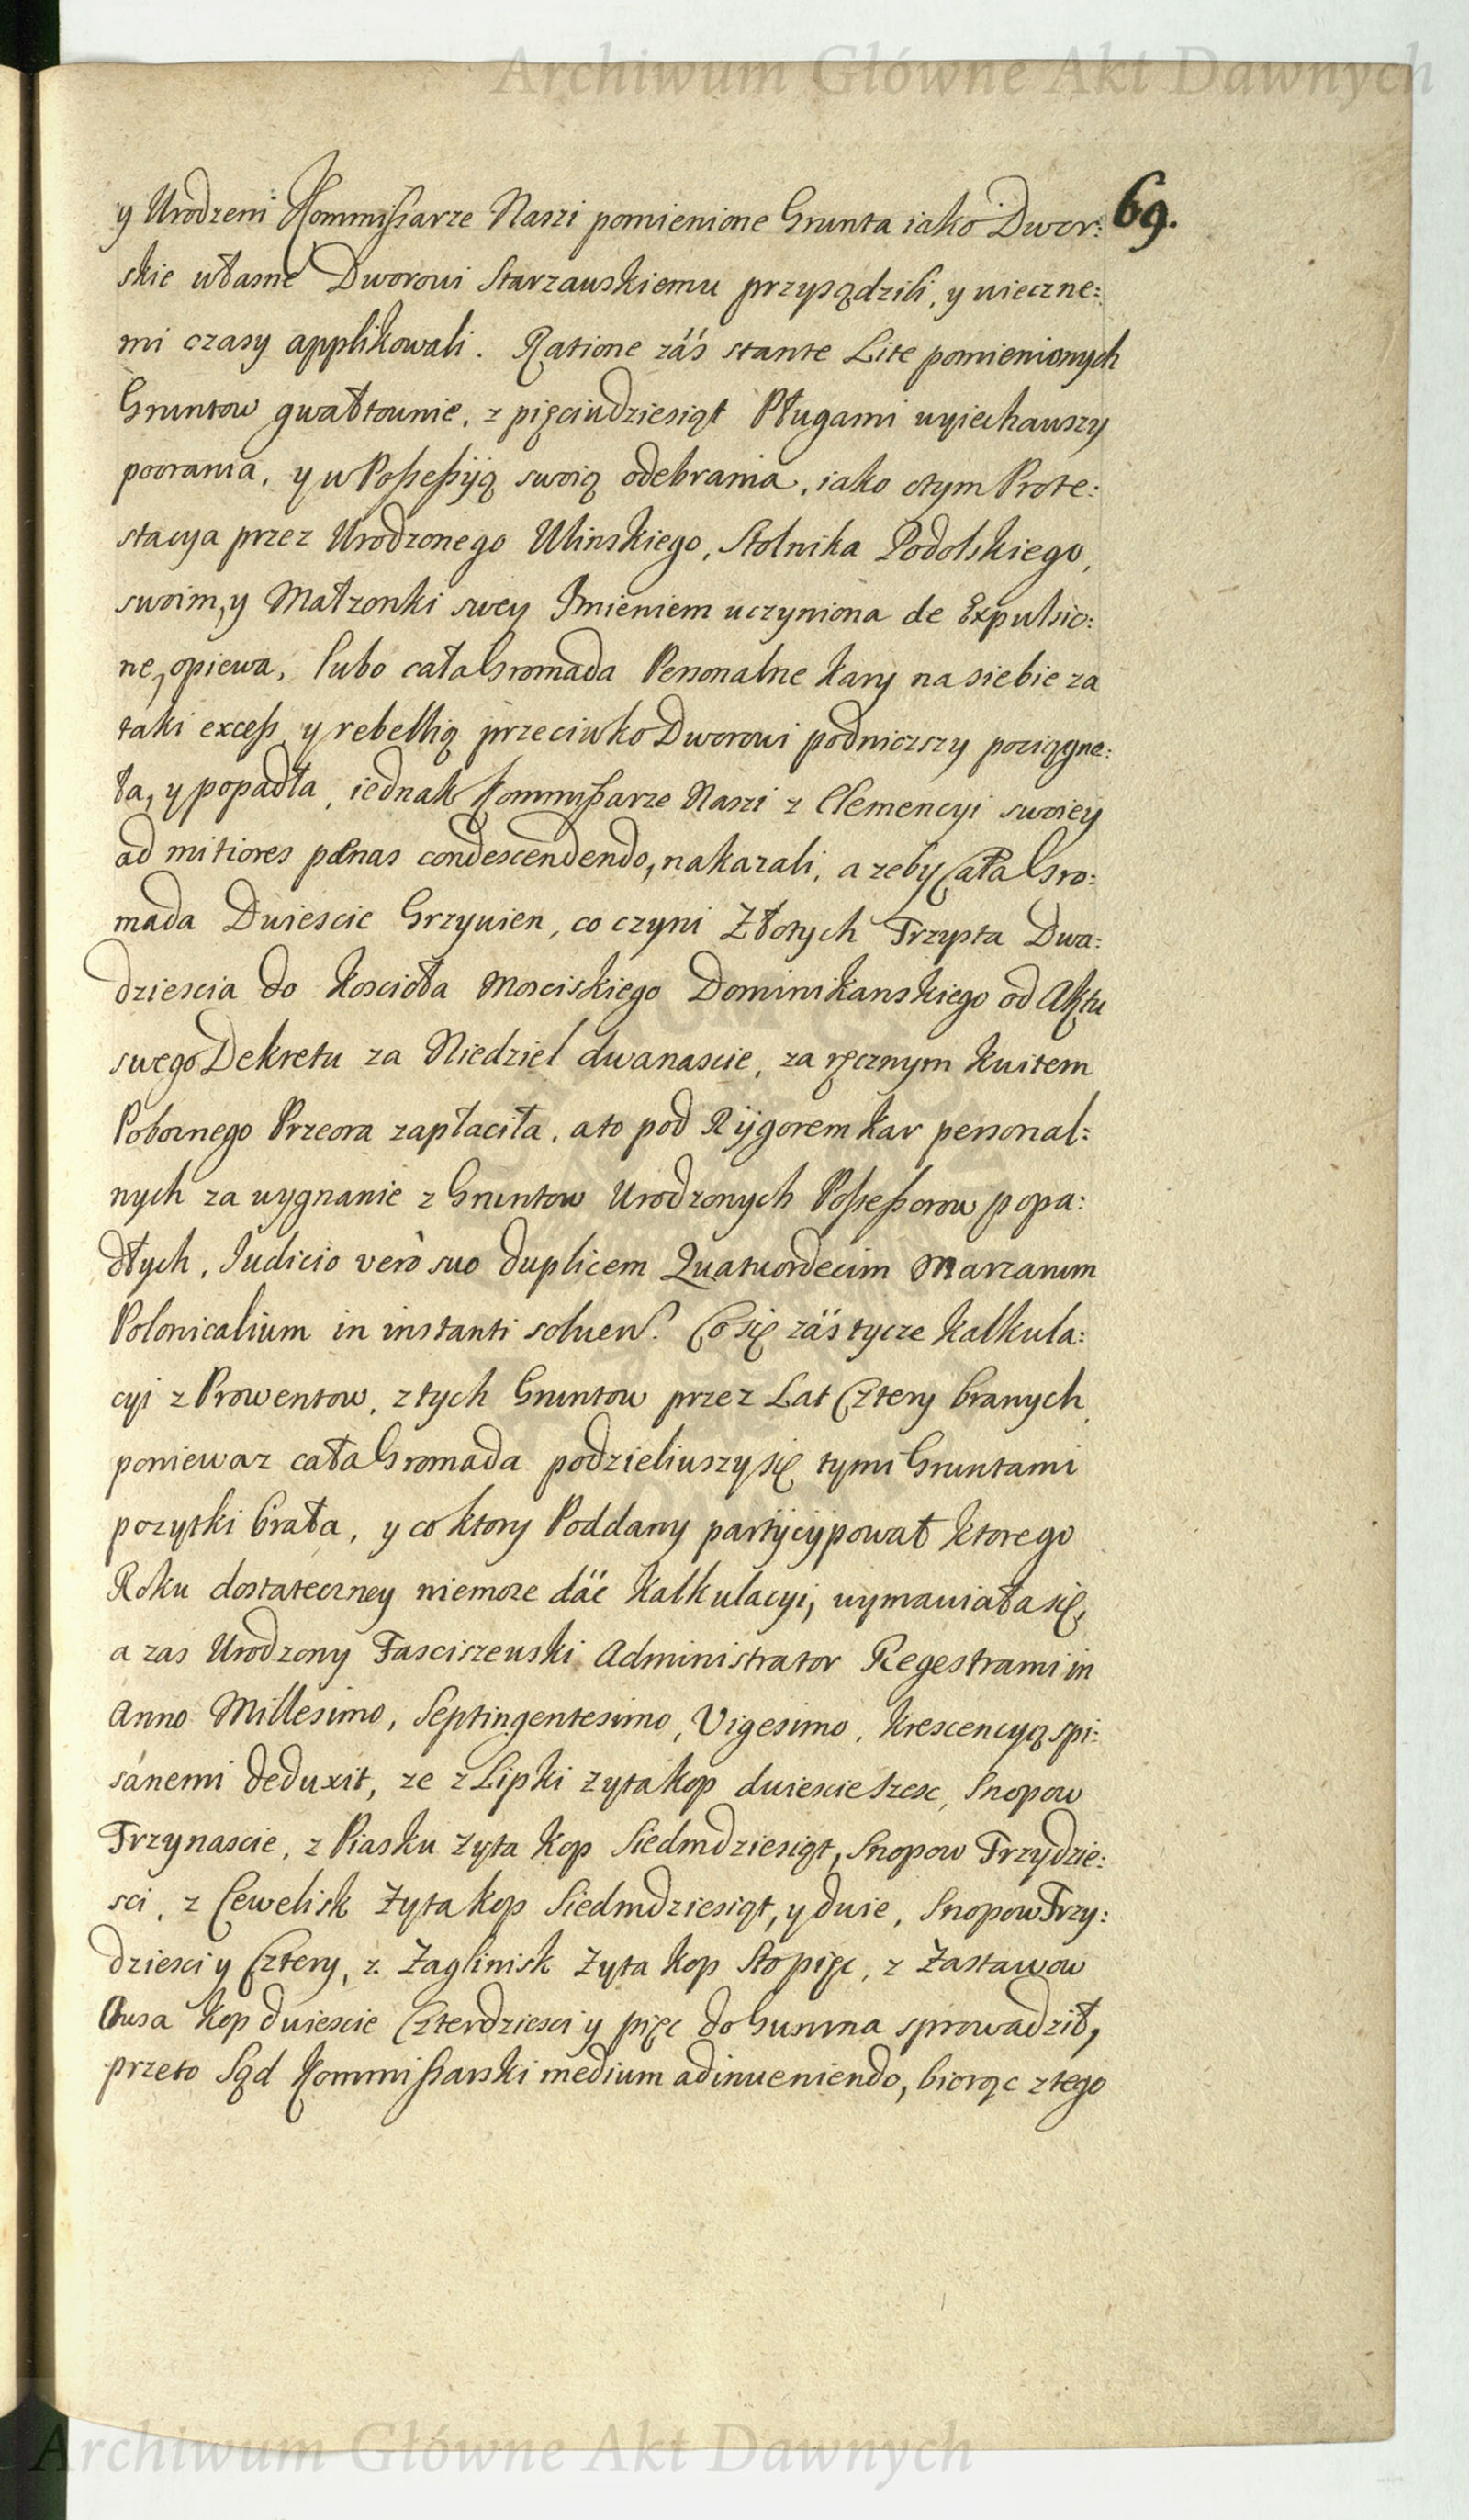 Archiwum Główne Akt Dawnych
69.
y Urodzeni Kommißarze Naszi pomienione Grunta iako Dwor:
skie własne Dworowi Starzawskiemu przysądzili, y wieczne:
mi czasy applikowali. Ratione zaś stante Lite pomienionych
Gruntow gwałtownie, z pięciudziesiąt Pługami wyiechawszy
poorania, y w Poßeßyią swoią odebrania, iako otym Prote:
stacya przez Urodzonego Ulinskiego, Stolnika Podolskiego,
swoim, y Małzonki swey Imieniem uczyniona de Expulsio:
ne, opiewa, lubo cała Gromada Personalne kary na siebie za
taki exceß y rebellią przeciwko Dworowi podniozszy pociągne:
ła, y popadła, iednak Kommißarze Naszi z Clemencyi swoiey
ad mitiores pœnas condescendendo, nakazali, a zeby Cała Gro:
mada Dwiescie Grzywien, co czyni Złotych Trzysta Dwa:
dziescia do Koscioła Mosciskiego Dominikanskiego od Aktu
swego Dekretu za Niedziel dwanascie, za ręcznym kwitem
Poboznego Przeora zapłaciła, a to pod Rÿgorem kar personal:
nych za wygnanie z Gruntow Urodzonych Poßeßorow popa:
dłych, Iudicio verò suo duplicem Quatuordecim Marcarum
Polonicalium in instanti soluen. Co się zaś tycze kalkula:
cyi z Prowentow, z tych Gruntow przez Lat Cztery branych,
poniewaz cała Gromada podzieliwszy się tymi Gruntami
pozytki brała, y co ktory Poddany partÿcÿpował ktorego
Roku dostateczney niemoze dać kalkulacyi, wymawiała się,
a zas Urodzony Fasciszewski Administrator Regestrami in
Anno Millesimo, Septingentesimo, Vigesimo, krescencyą spi:
sánemi deduxit, ze z Lipki zyta kop dwiescie szesc, Snopow
Trzynascie, z Piasku zyta kop Siedmdziesiąt, Snopow Trzydzie:
sci, z Cewelisk Zyta kop Siedmdziesiąt, y dwie, Snopow Trzy:
dziesci y Cztery, z Zaglinisk Zyta kop Sto pięc, z Zastawow
Owsa kop dwiescie Czterdziesci y pięc do Gumna sprowadził,
przeto Sąd Kommißarski medium adinueniendo, biorąc z tego
Archiwum Główne Akt Dawnych